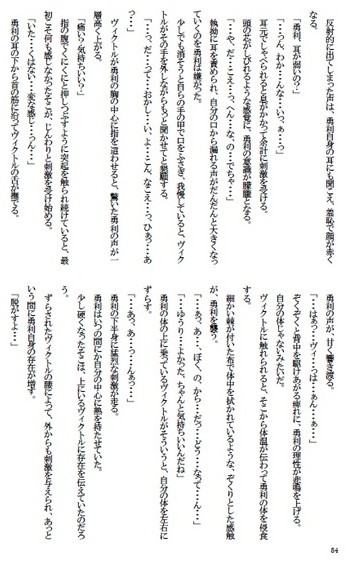 反射的に出てしまった声は、勇利自身の耳にも聞こえ、羞恥で顔が赤く
なる。
「勇利、耳が弱いの？」
「・・うん、わか・・んな・・いっ、ぁ・・っ」
耳元でしゃべられると息がかかって余計に刺激を受ける。
頭の芯がしびれるような感覚に、勇利の意識が朦朧となる。
「・・や、だ・・こえ・・っ、へん・・な、の・・でちゃ・・」
執拗に耳を責められ、自分の口から漏れる声がだんだんと大きくなっ
ていくのを勇利は嫌がった。
少しでも消そうと自らの手の甲で口をふさぎ、我慢していると、ヴィク
トルがその手を外しながらもっと聞かせてと懇願する。
「・・っ、だ・・って・・おかし・・い、よ・・こん、なこえ・・っ、ひぁっ・・あ
っ・・」
ヴィクトルが勇利の胸の中心に指を這わせると、驚いた勇利の声が一
層高く上がる。
「痛い？気持ちいい？」
指の腹でくにくにと押しつぶすように突起を触られ続けていると、最
初こそ何も感じなかったそこが、じんわりと刺激を受け始める。
「いた・・くはない・・変な感じ・・うん・・」
勇利の耳の下から首の筋に沿ってヴィクトルの舌が這する。
勇利の声が、甘く響き渡る。
「・・はあっ・・ヴィ・・っは・・あん・・ぁ・・」
ぞくぞくと背中を駆けあがる痺れに、勇利の理性が赤鳴を上げる。
自分の体じゃないみたいだ。
ヴィクトルに触れられると、そこから体温が伝わって勇利の体を侵食
細かい棘が付いた布で体中を拭かれているような、ぞくりとした感触
が、勇利を襲う。
「・・あっ、あ・・ぼく、の、から・・だっ・・どう・・なって・・ん・・」
「・・ゆうり・・よかった、ちゃんと気持ちいいんだね」
勇利の体の上に乗っているヴィクトルがそういうと、自分の体を左右に
ずらす。
「・・あっ、あ・・っ・・んぁっ・・」
勇利の下半身に猛烈な刺激が走る。
勇利はいつの間にか自分の中心に熱を持たせていた。
少し硬くなったそこは、上にいるヴィクトルに存在を伝えていたのだろ
う。
ずらされたヴィクトルの腰によって、外からも刺激を与えられ、あっと
いう間に勇利自身の存在が増す。
「脱がすよ・・」
54